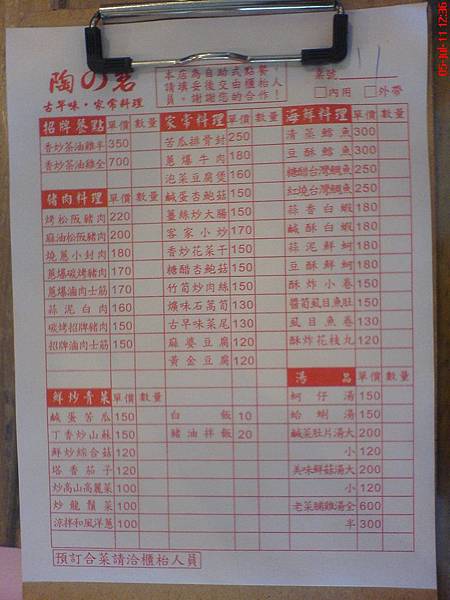 陶の茗
古早味・家常料理
本店為自助式點餐
請填妥後交由櫃枱人
員。謝謝您的合作!
桌號 11
□內用 □外帶
招牌餐點 單價 數量
香炒茶油雞半 350
香炒茶油雞全 700
豬肉料理 單價 數量
烤松阪豬肉 220
麻油松阪豬肉 200
燒蔥小封肉 180
蔥爆碳烤豬肉 170
蔥爆滷肉士筋 170
蒜泥白肉 160
碳烤招牌豬肉 150
招牌滷肉士筋 150
鮮炒青菜 單價 數量
鹹蛋苦瓜 150
丁香炒山蘇 150
鮮炒綜合菇 120
塔香茄子 120
炒高山高麗菜 100
炒龍鬚菜 100
涼拌和風洋蔥 100
家常料理 單價 數量
苦瓜排骨封 250
蔥爆牛肉 180
泡菜豆腐煲 160
鹹蛋杏鮑菇 150
薑絲炒大腸 150
客家小炒 170
香炒花菜干 150
糖醋杏鮑菇 150
竹筍炒肉絲 150
古早味菜尾 130
麻婆豆腐 120
黃金豆腐 120
白飯 10
豬油拌飯 20
海鮮料理 單價 數量
清蒸鱈魚 300
豆酥鱈魚 300
糖醋台灣鯛魚 250
紅燒台灣鯛魚 250
蒜香白蝦 180
鹹酥白蝦 180
蒜泥鮮蚵 180
豆酥鮮蚵 180
酥炸小卷 150
醬筍虱目魚肚 150
虱目魚卷 130
酥炸花枝丸 120
湯品 單價 數量
蚵仔湯 150
蛤蜊湯 150
鹹菜肚片湯大 200
小 120
美味鮮菇湯大 200
小 120
老菜脯雞湯全 600
半 300
預訂合菜請洽櫃枱人員
05-Jul-11 12:36